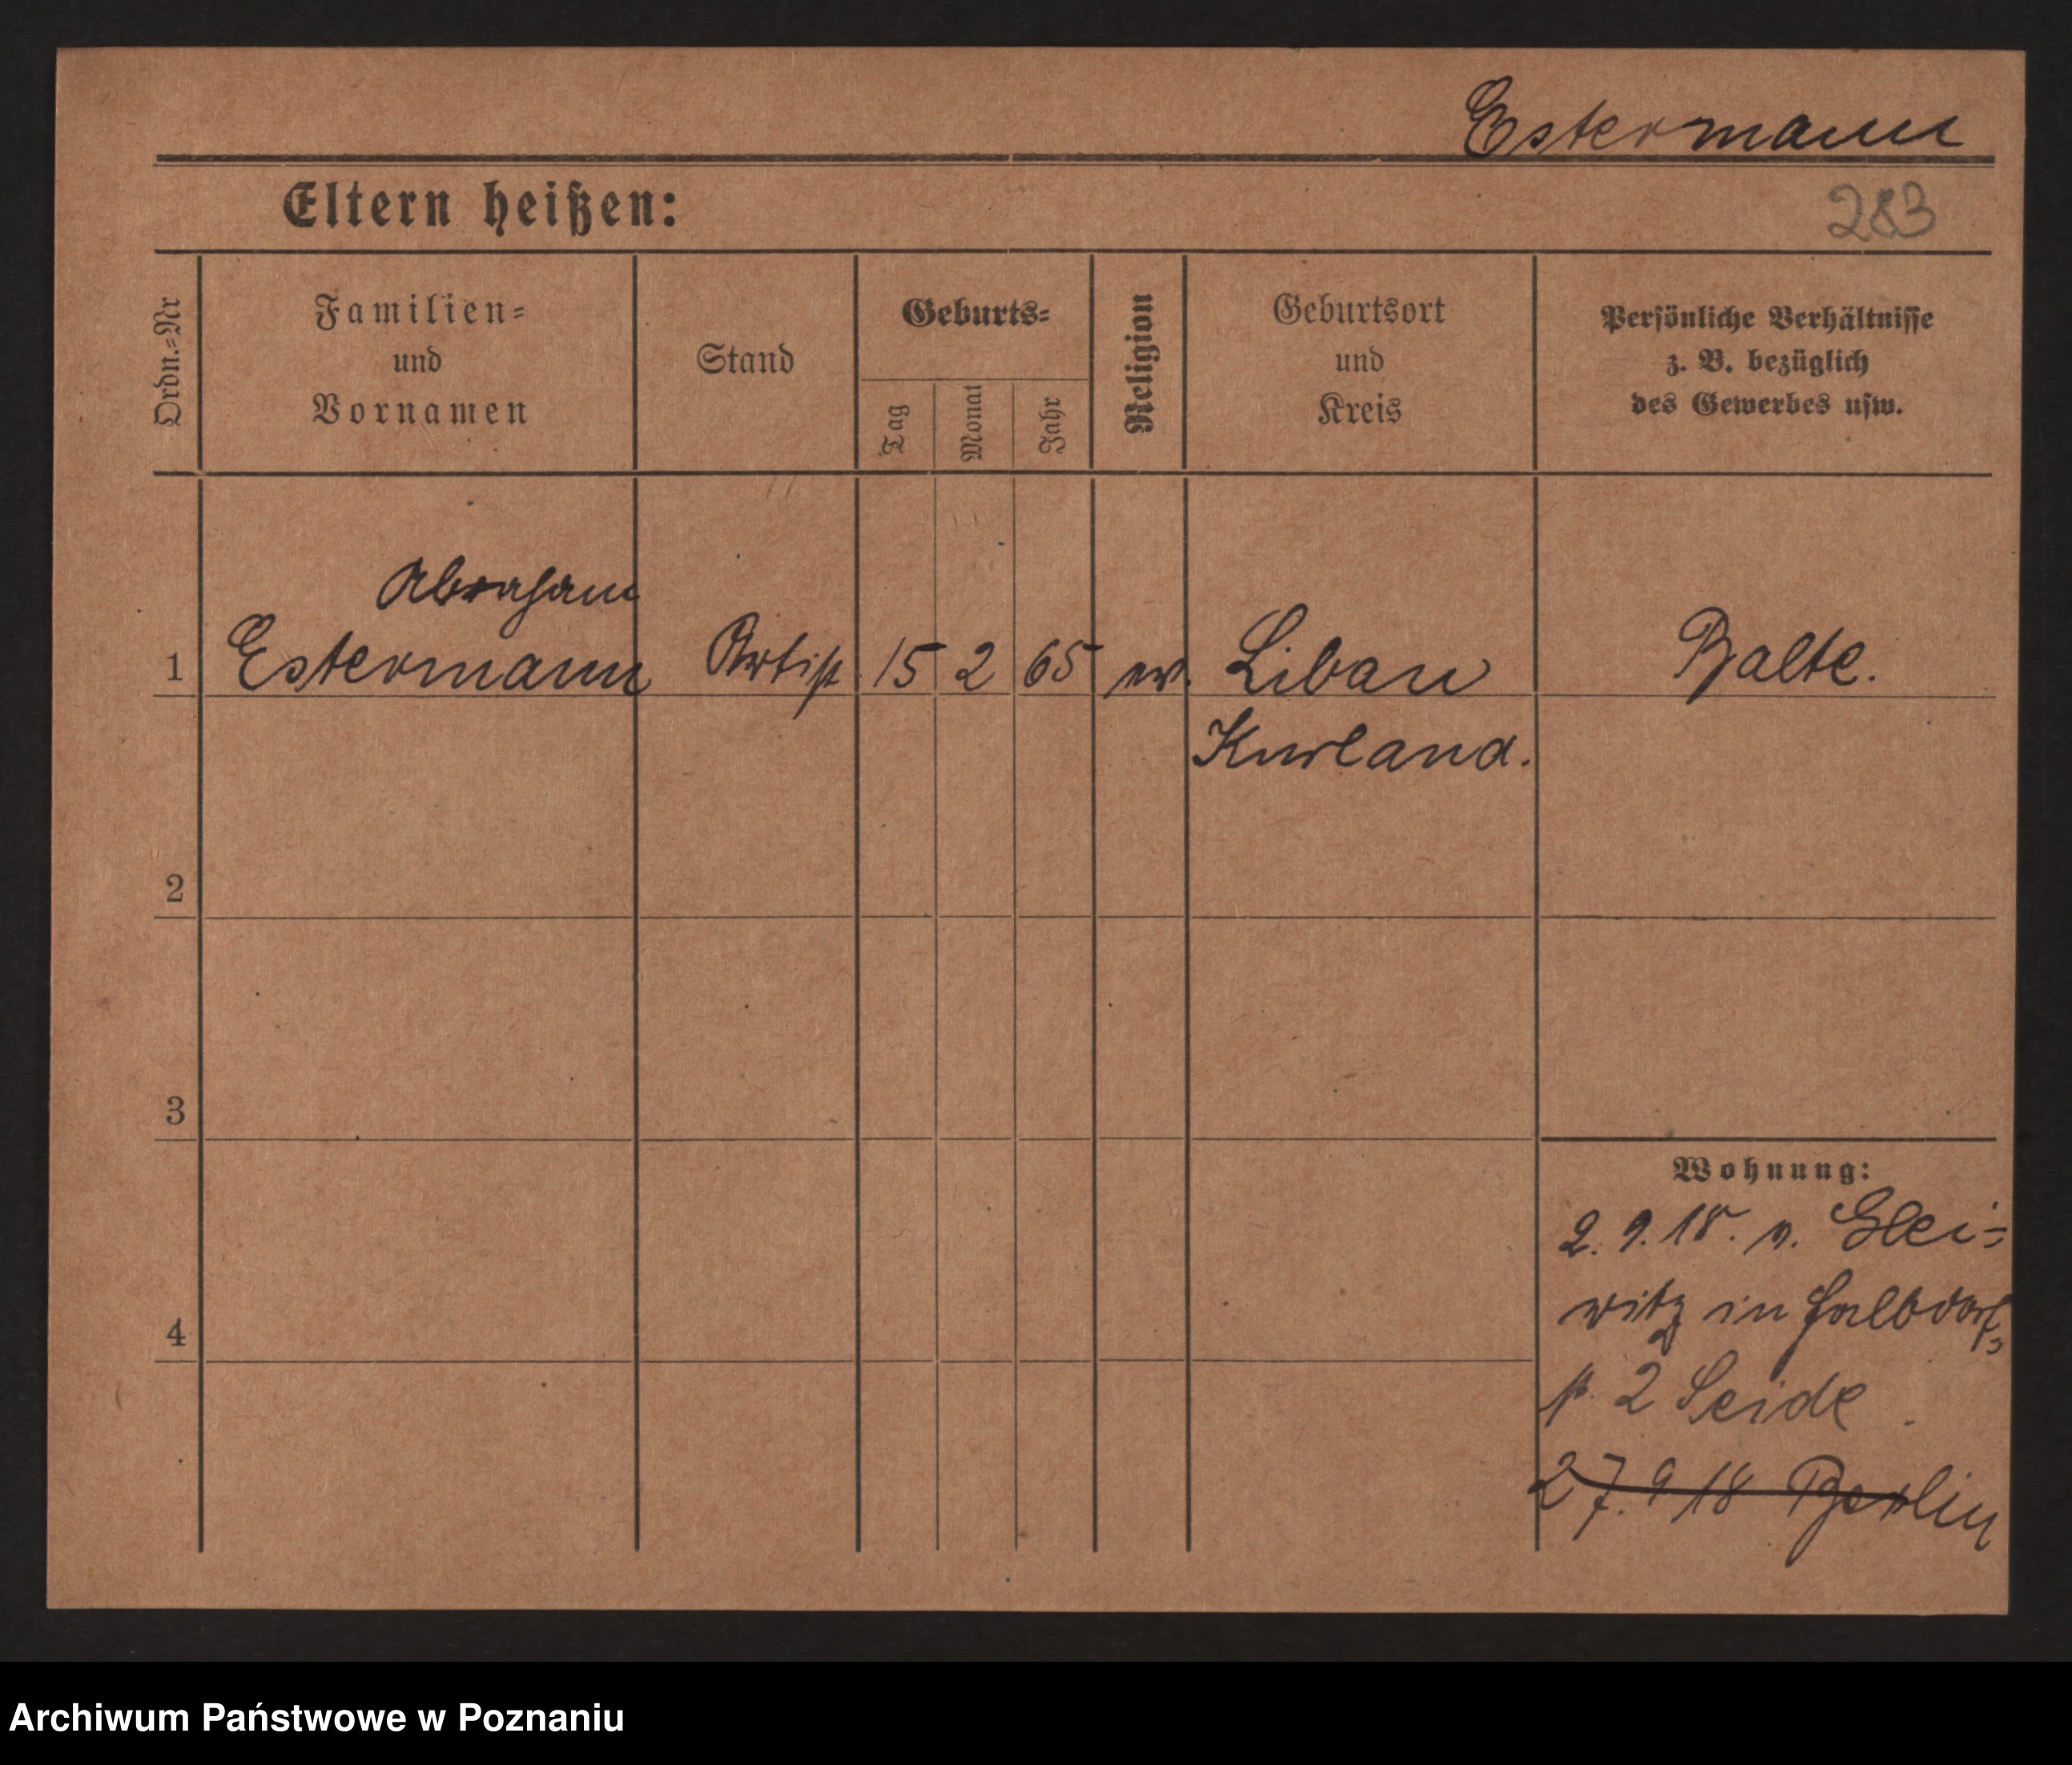 Estermann
Eltern heißen:
283
Ordn.=Nr
Familien=
und
Vornamen
Stand
Geburts=
Tag
Monat
Jahr
Religion
Geburtsort
und
Kreis
Persönliche Verhältnisse
z. B. bezüglich
des Gewerbes usw.
Abraham
1 Estermann Artist 15 2 65 ev. Libau Balte.
Kurland.
2
3
4
Wohnung:
2. 9. 18. v. Glei=
witz in Halbdorf=
st. 2 Seide
27. 9 18 Berlin
Archiwum Państwowe w Poznaniu